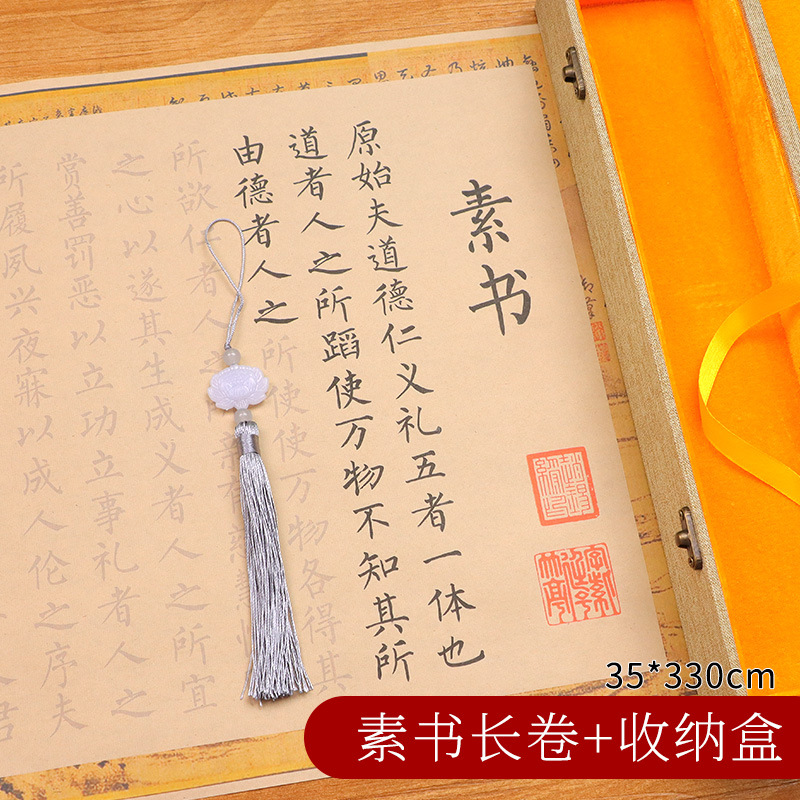 素书
原始夫道德仁义礼五者一体也
道者人之所蹈使万物不知其所
由德者人之所使使万物各得其
所欲仁者人之所有慈
之心以遂其生成义者人之所宜
赏善罚恶以立功立事礼者人之
所履夙兴夜寐以成人伦之序夫
君
35*330cm
素书长卷+收纳盒